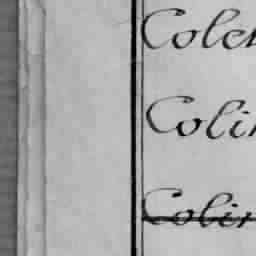 Colet
Colin
Colin